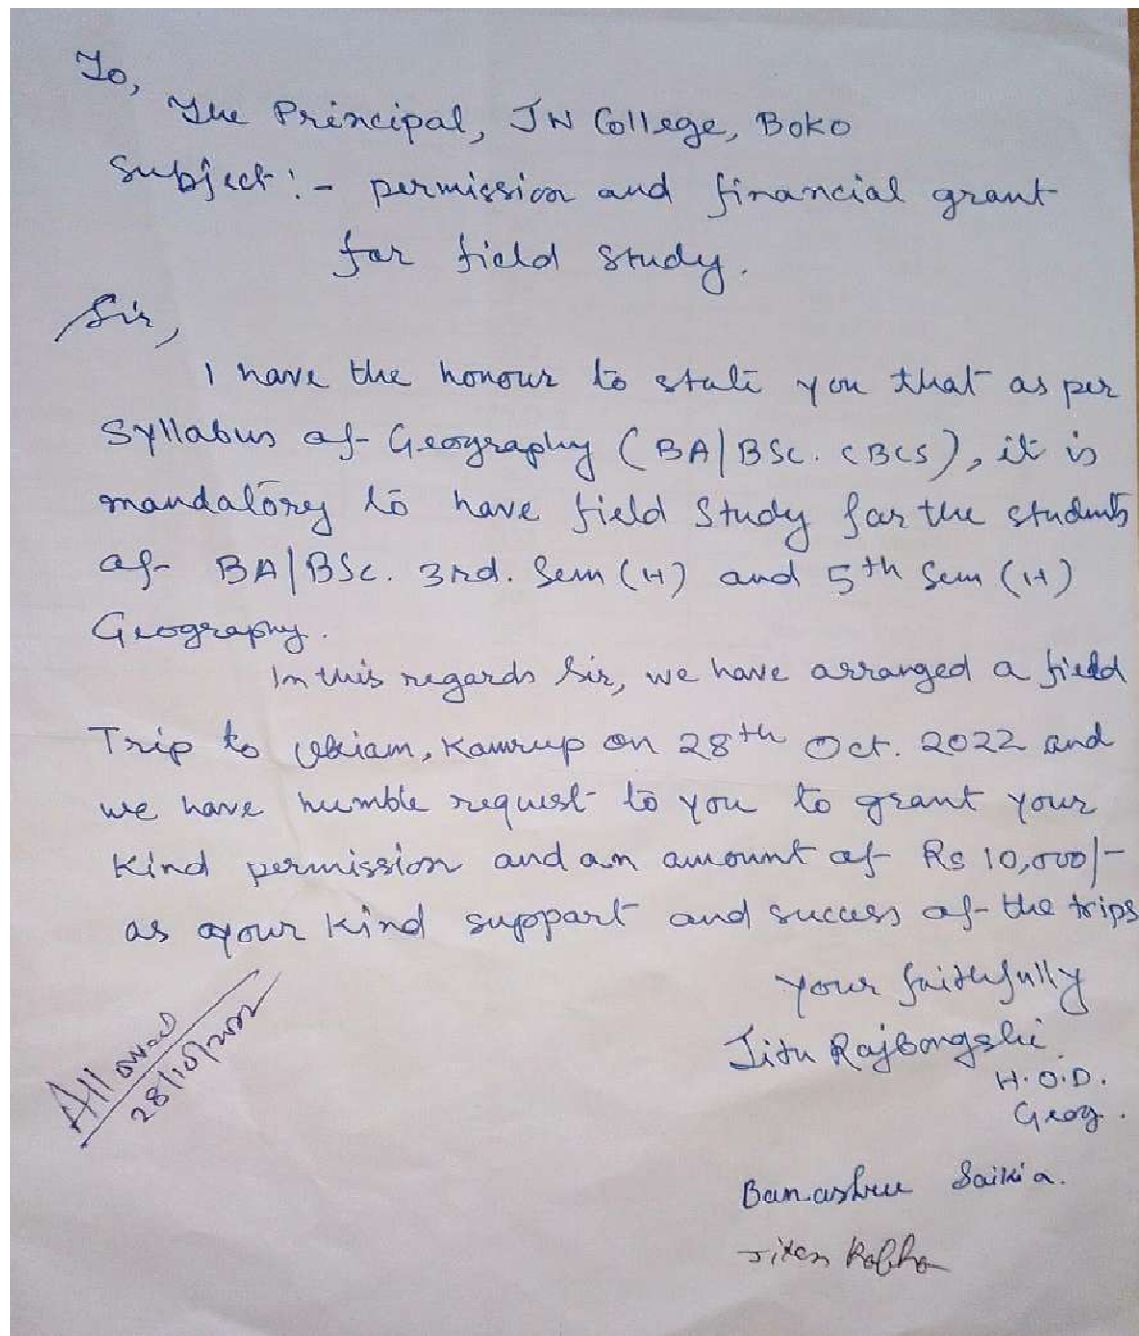 To,
The Principal, JN College, Boko
Subject :- permission and financial grant
for field study.
Sir,
I have the honour to state you that as per
Syllabus of Geography (BA/BSc. CBCS), it is
mandatory to have field study for the students
of BA/BSc. 3rd. Sem (H) and 5th Sem (H)
Geography.
In this regards Sir, we have arranged a field
Trip to Ukiam, Kamrup on 28th Oct. 2022 and
we have humble request to you to grant your
kind permission and an amount of Rs 10,000/-
as your kind support and success of the trips
Your faithfully
Jitu Rajbongshi
H.O.D.
Geog.
Allowed
28/10/2022
Banashree Saikia.
Jiten Rabha